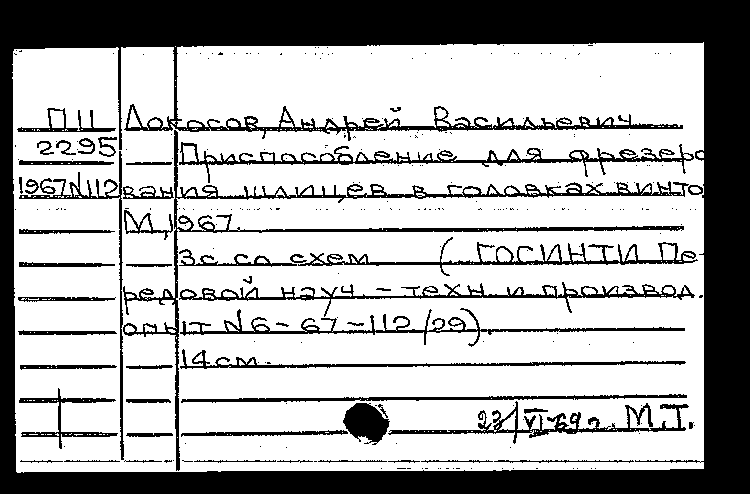 П11 Локосов, Андрей Васильевич
2295 Приспособление для фрезеро
1967N112 вания шлицев в головках винто
М., 1967.
3с со схем (ГОСИНТИ Пе-
редовой науч. - техн и производ.
опыт N6-67-112/29).
14см.
23/VI-69г. М.Т.